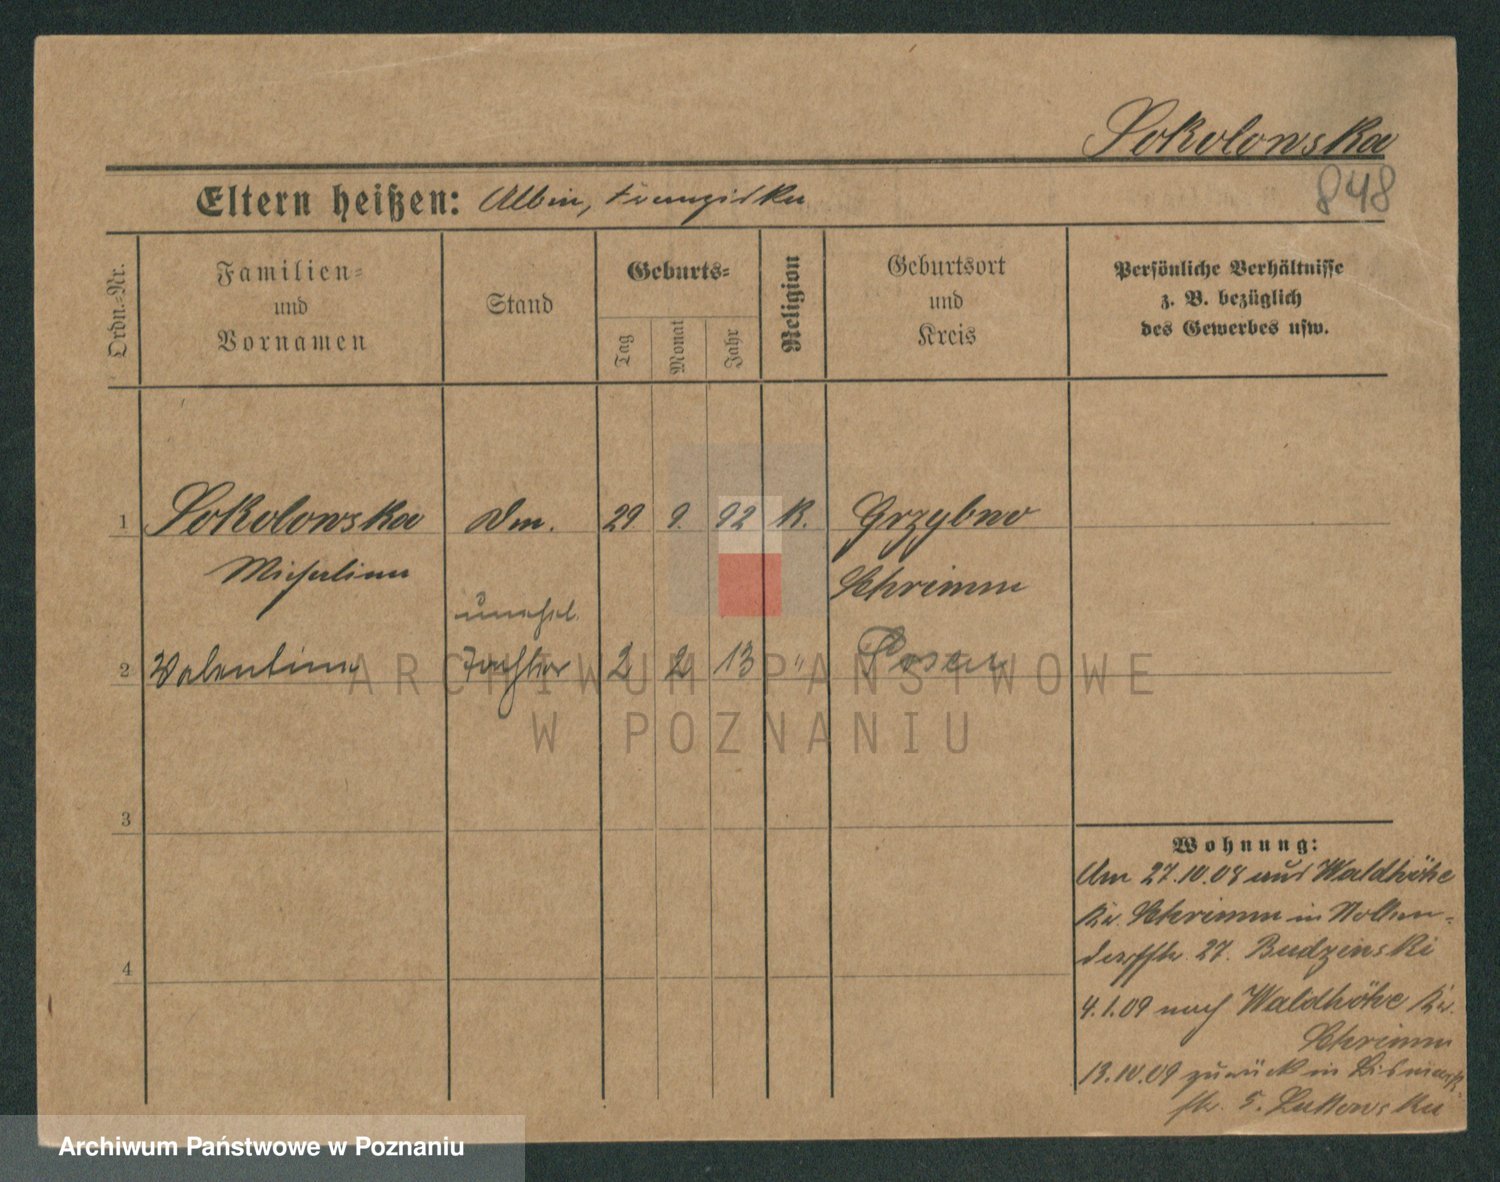 Sokolowska
848
Eltern heißen: Albin, Franziska
Ordn.-Nr.
Familien-
und
Vornamen
Stand
Geburts-
Tag
Monat
Jahr
Religion
Geburtsort
und
Kreis
Persönliche Verhältnisse
z. B. bezüglich
des Gewerbes usw.
1 Sokolowska Dm. 29. 9. 92 K. Grzybno
Michalina Schrimm
unehel.
2 Valentina Tochter 2 2 13 " Posen
3
4
Wohnung:
Am 27.10.08 aus Waldhöhe
Kr. Schrimm in Nollen-
dorffstr. 27. Budzinski
4.1.09 nach Waldhöhe Kr.
Schrimm
13.10.09 zurück in Bismarck
str. 5. Lutkowska
ARCHIWUM PAŃSTWOWE
W POZNANIU
Archiwum Państwowe w Poznaniu